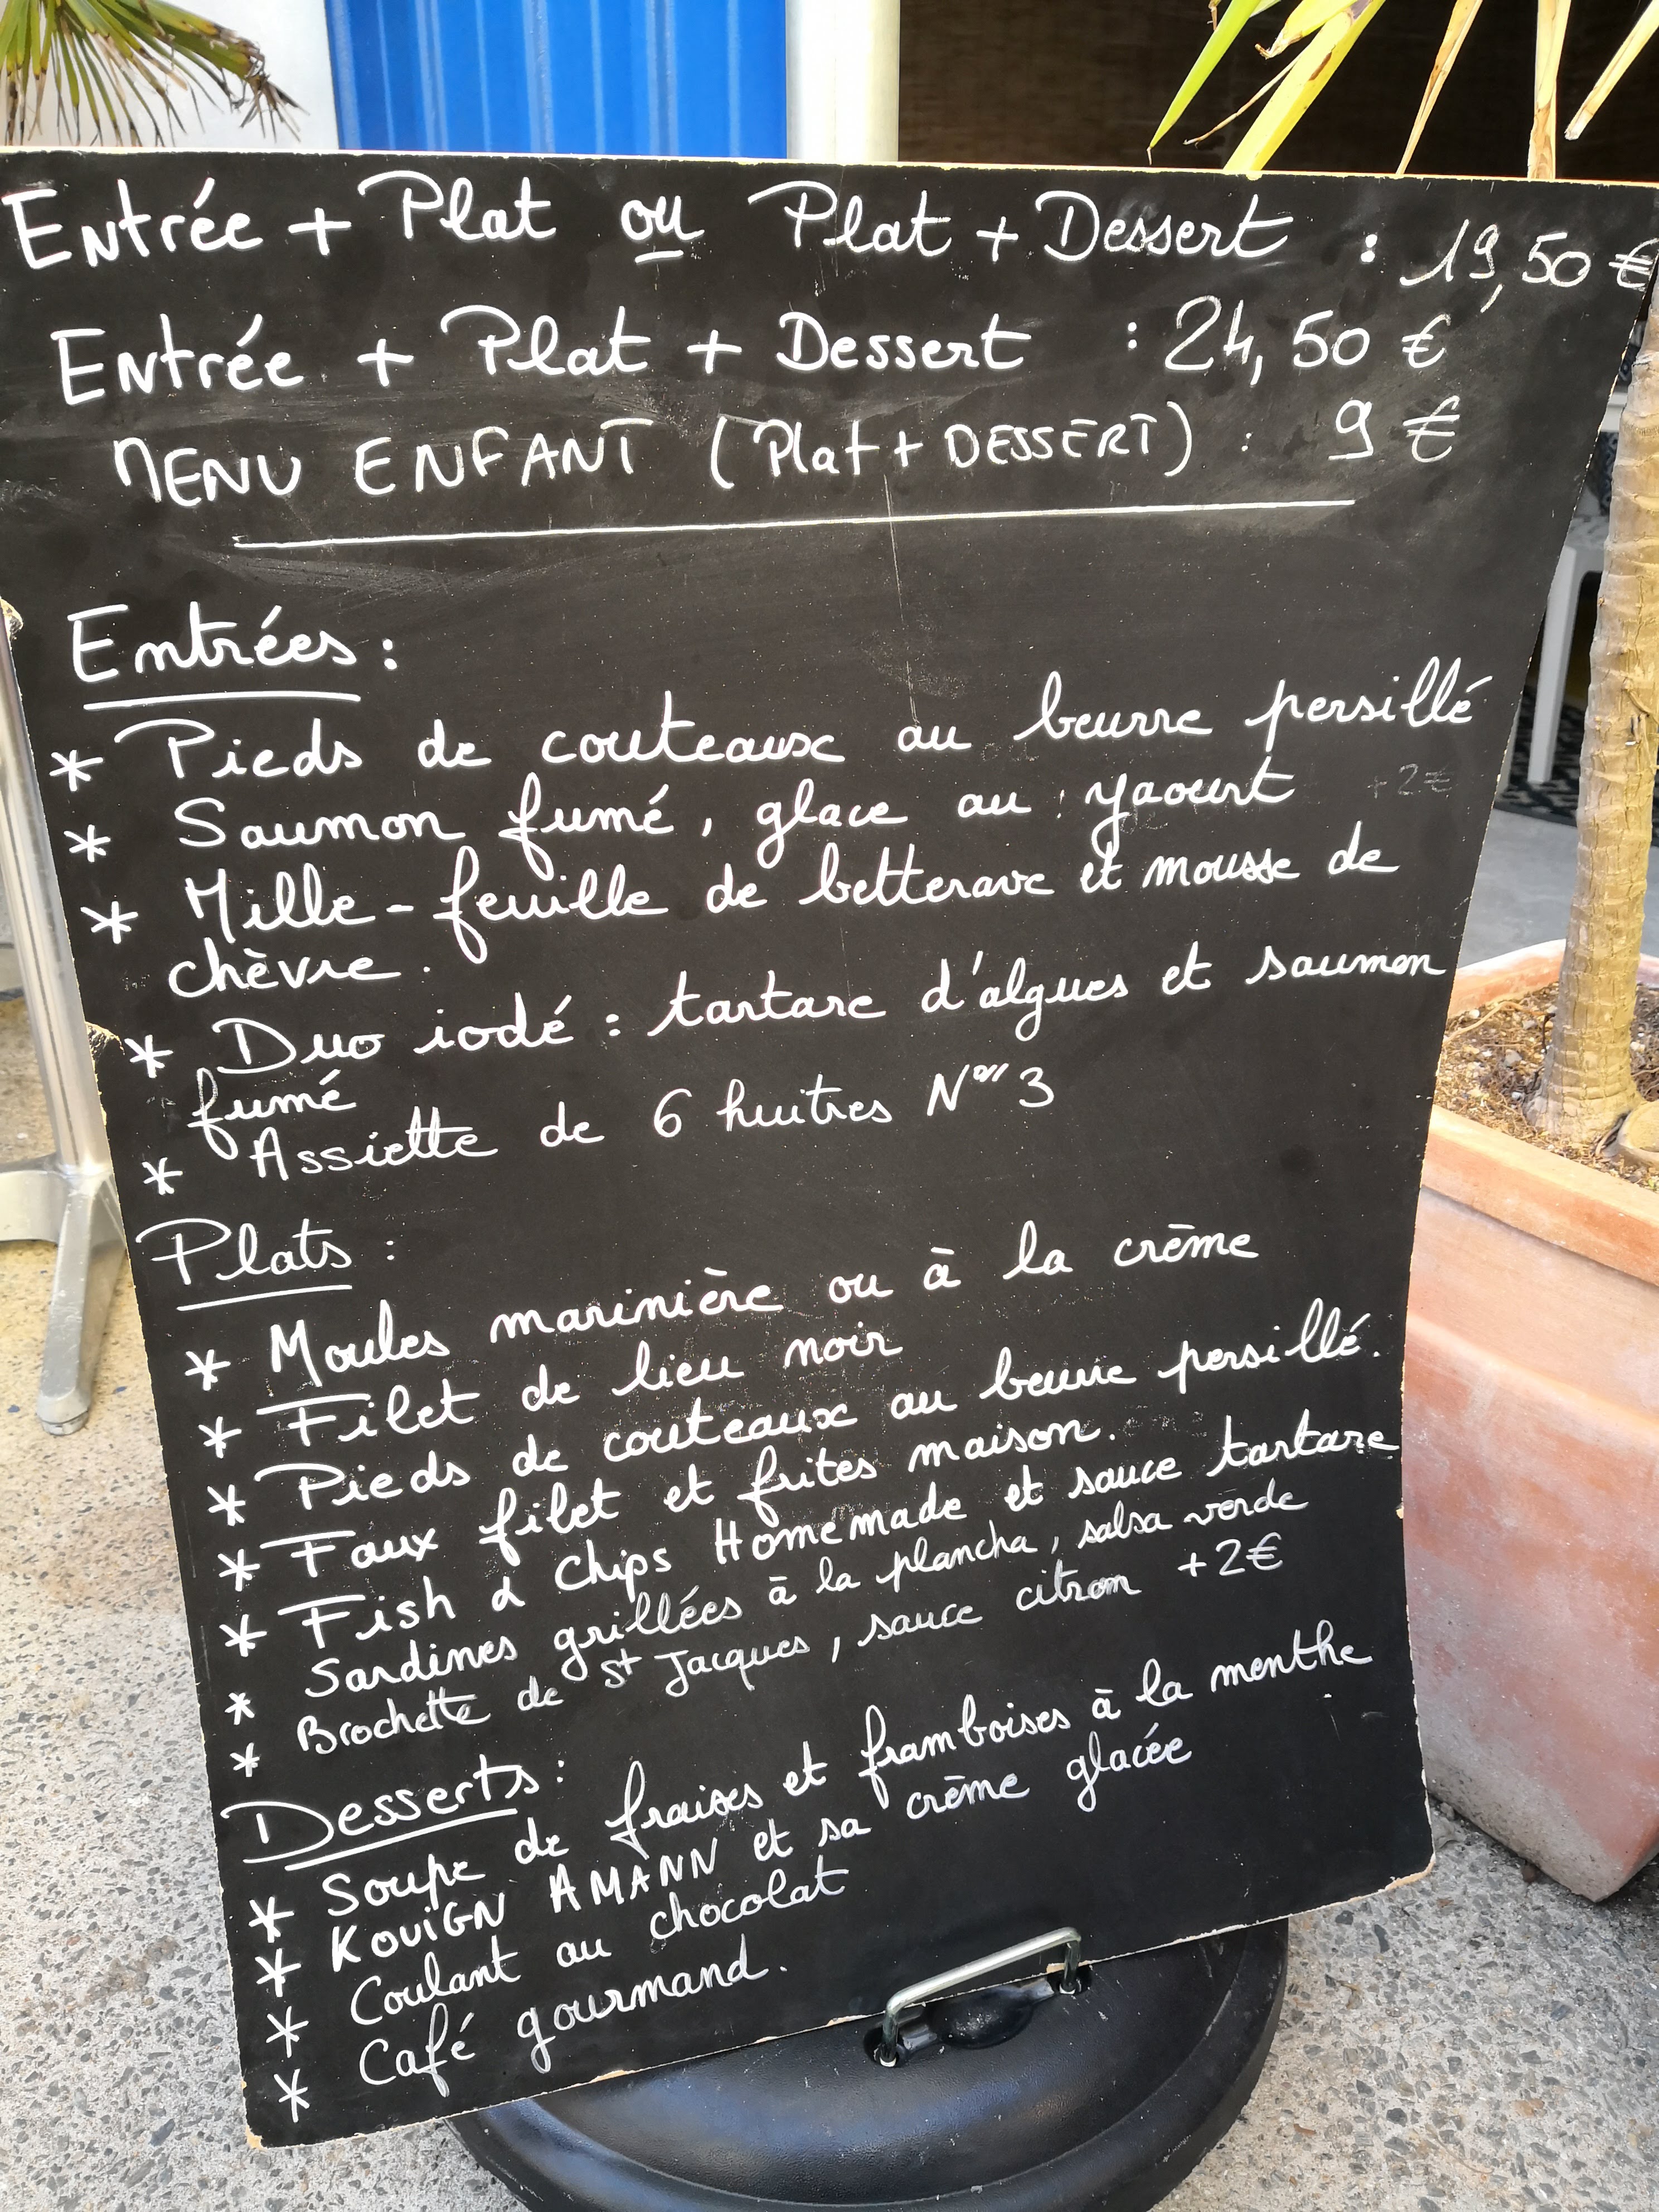 Entrée + Plat ou Plat + Dessert : 19,50 €
Entrée + Plat + Dessert : 24,50 €
MENU ENFANT (Plat + DESSERT) : 9 €
Entrées :
* Pieds de couteaux au beurre persillé
* Saumon fumé, glace au yaourt +2€
* Mille-feuille de betterave et mousse de
chèvre.
* Duo iodé : tartare d'algues et saumon
fumé
* Assiette de 6 huitres N° 3
Plats :
* Moules marinière ou à la crème
* Filet de lieu noir
* Pieds de couteaux au beurre persillé.
* Faux filet et frites maison.
* Fish & chips Homemade et sauce tartare
* Sardines grillées à la plancha, salsa verde
* Brochette de St Jacques, sauce citron +2€
Desserts :
* Soupe de fraises et framboises à la menthe
* KOUIGN AMANN et sa crème glacée
* Coulant au chocolat
* Café gourmand.